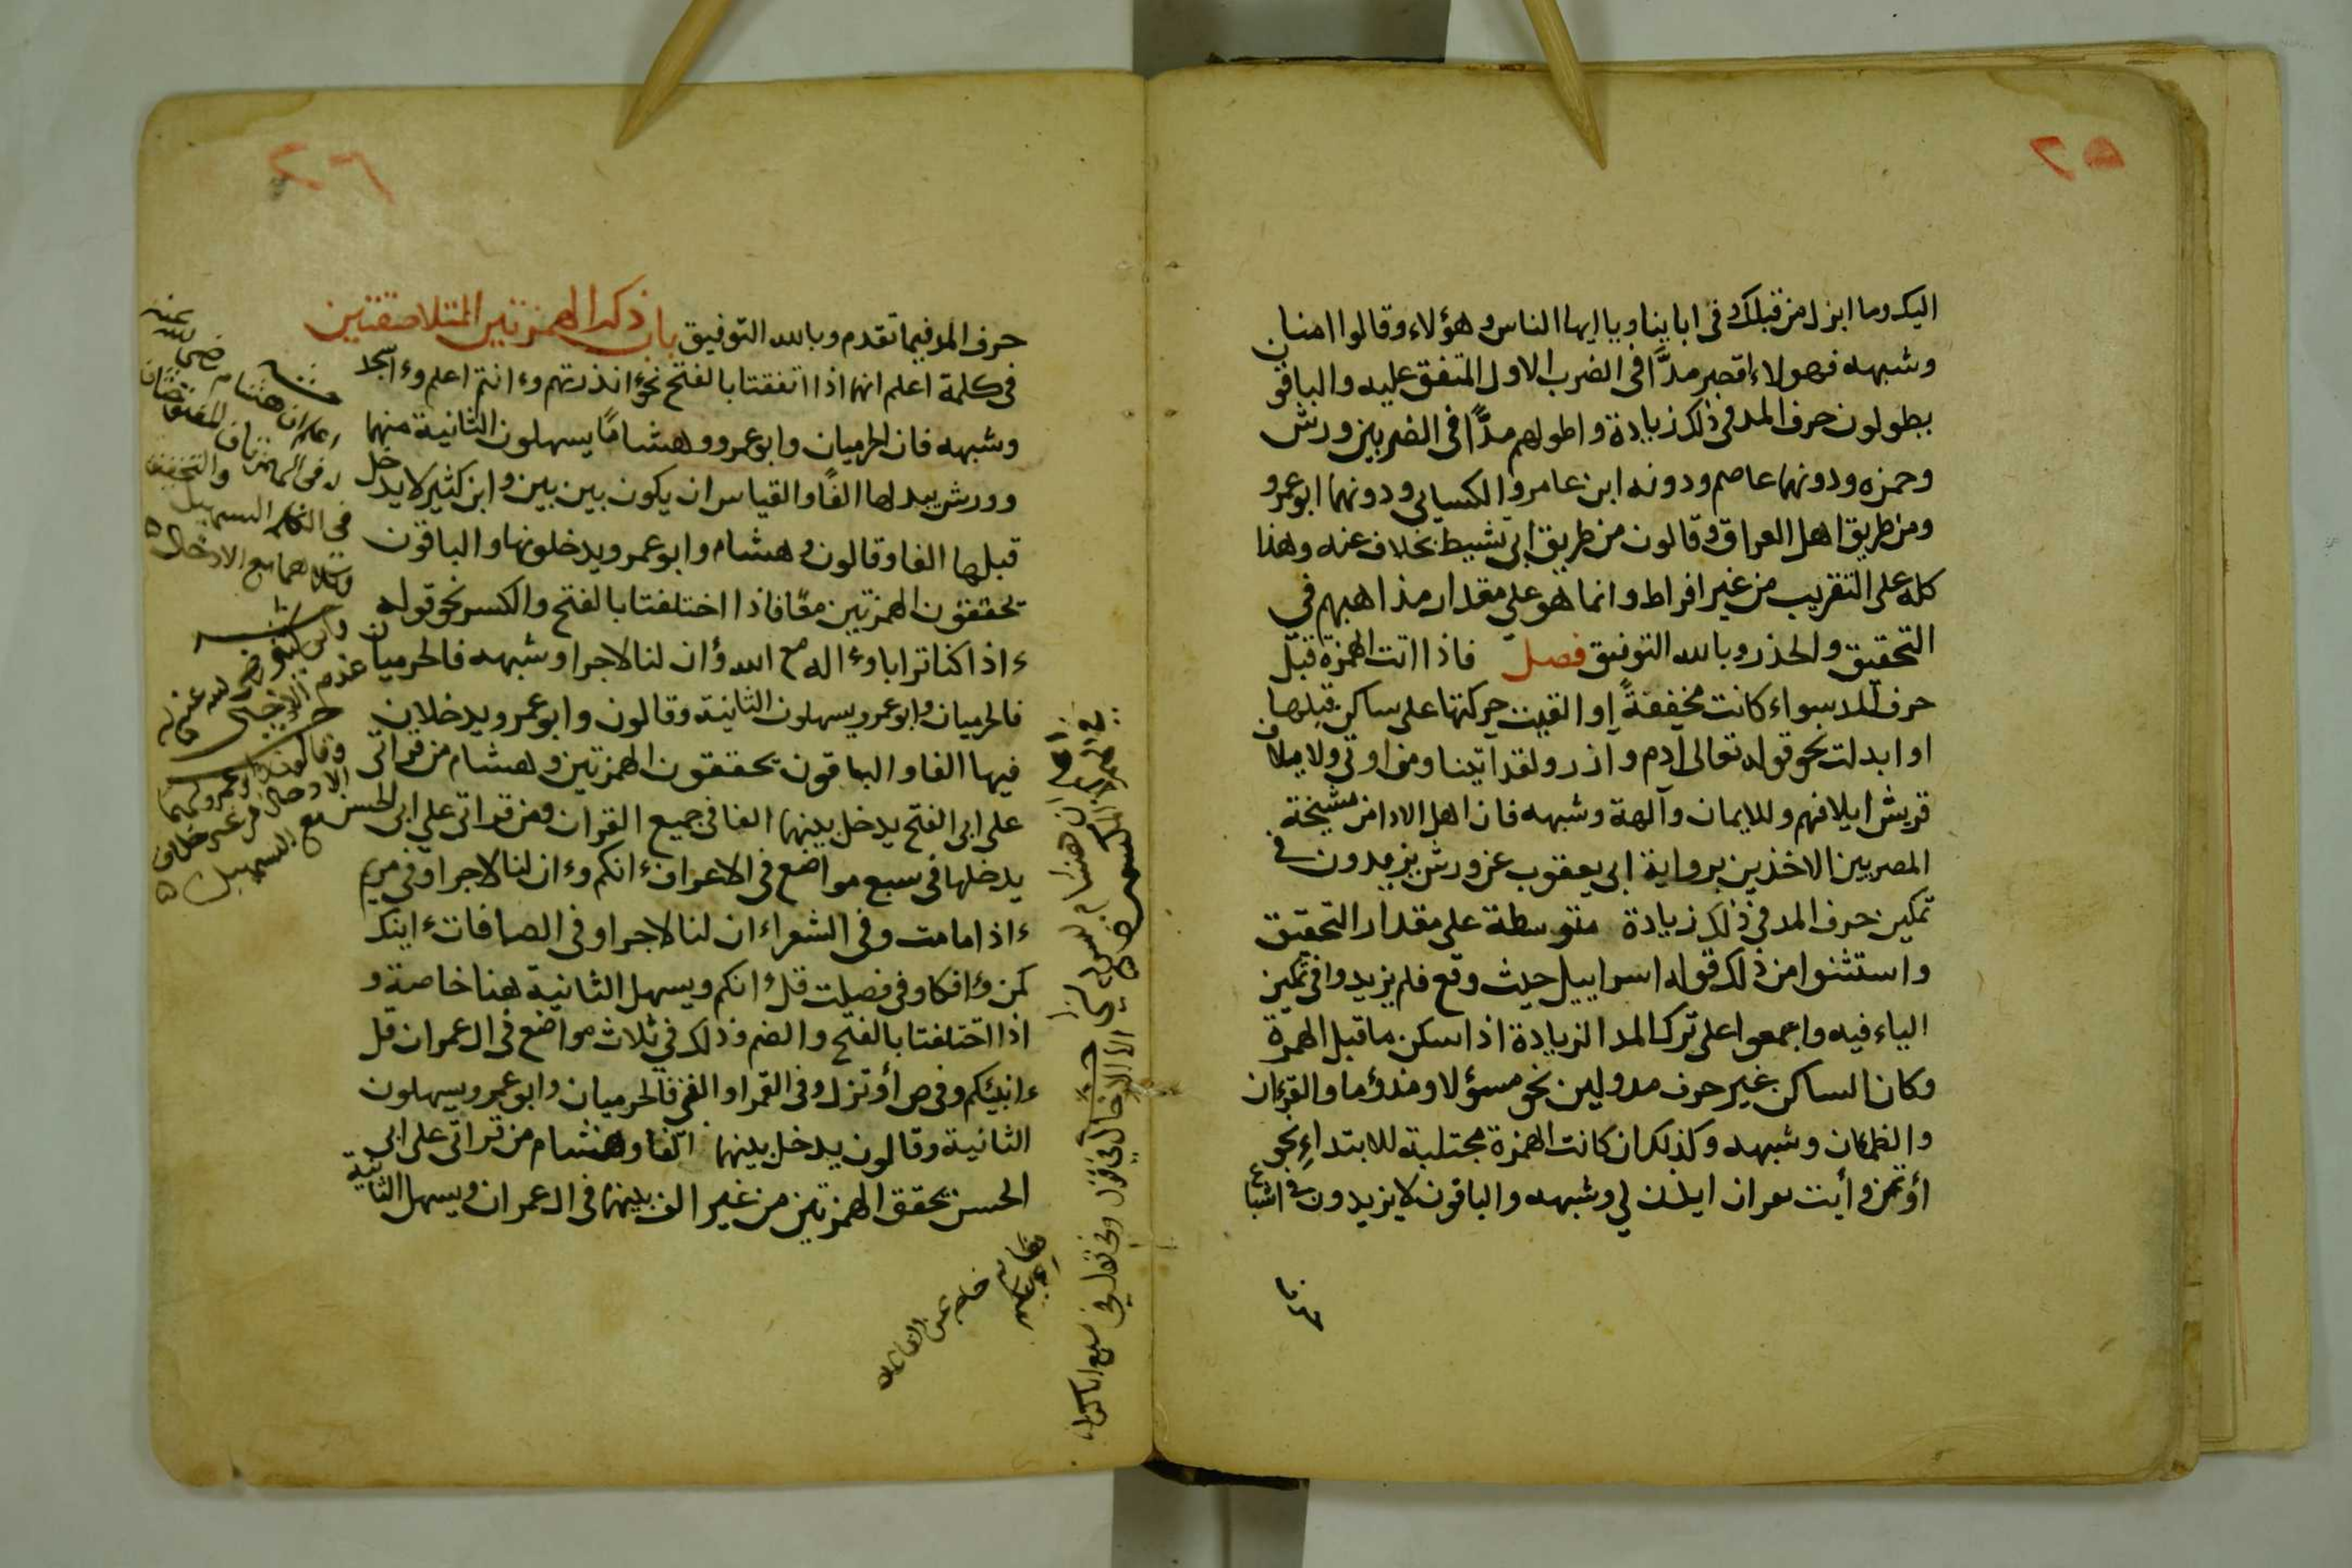 ٢٥
اليك وما انزل من قبلك وفى اباينا ويا ايها الناس وهؤلاء وقالوا امنا
وشبهه فهولاء اقصر مدًّا فى الضرب الاول المتفق عليه والباقون
يطولون حرف المد فى ذلك زيادة واطولهم مدًّا فى الضربين ورش
وحمزه ودونهما عاصم ودونه ابن عامر والكسائى ودونهما ابو عمرو
ومن طريق اهل العراق وقالون من طريق ابى نشيط بخلاف عنه وهذا
كله على التقريب من غير افراط وانما هو على مقدار مذاهبهم في
التحقيق والحذر وبالله التوفيق فصل فاذا اتت الهمزة قبل
حرف المد سواء كانت مخففةً او القيت حركتها على ساكن قبلها
او ابدلت نحو قوله تعالى آدم وآزر ولقد آتينا ومن اوتى ولايلاف
قريش ايلافهم وللايمان وآلهة وشبهه فان اهل الادا من مشيخة
المصريين الاخذين برواية ابى يعقوب عن ورش يزيدون فى
تمكين حرف المد فى ذلك زيادة متوسطة على مقدار التحقيق
واستثنوا من ذلك قوله اسراييل حيث وقع فلم يزيدوا فى تمكين
الياء فيه واجمعوا على ترك المد الزيادة اذا سكن ما قبل الهمزة
وكان الساكن غير حرف مد ولين نحو مسؤلا ومذؤما والقرءان
والظمان وشبهه وكذلك ان كانت الهمزة مجتلبة للابتداءِ نحو
أوتمن وأيت بقران ايذن لي وشبهه والباقون لا يزيدون فى اشباع
٢٦
حرف المد فيما تقدم وبالله التوفيق باب ذكر الهمزتين المتلاصقتين
فى كلمة اعلم انهما اذا اتفقتا بالفتح نحو ءانذرتهم وءانتم اعلم وءاسجد
وشبهه فان الحرميان وابو عمرو وهشامًا يسهلون الثانية منهما
وورش يبدلها الفًا والقياس ان يكون بين بين وابن كثير لا يدخل
قبلها الفا وقالون وهشام وابو عمرو يدخلونها والباقون
يحققون الهمزتين معًا فاذا اختلفتا بالفتح والكسر نحو قوله
ءاذا كنا ترابا وءاله مع الله وأن لنا لاجرا وشبهه فالحرميان
فالحرميان وابو عمرو يسهلون الثانية وقالون وابو عمرو يدخلان
فيها الفا والباقون يحققون الهمزتين وهشام من قراتى
على ابى الفتح يدخل بينهما الفا فى جميع القران ومن قراتى على ابى الحسن
يدخلها فى سبع مواضع فى الاعراف ءانكم وءان لنا لاجرا وفى مريم
ءاذا ما مت وفى الشعراء ان لنا لاجرا وفى الصافات ءاينك
لمن وءافكا وفى فصلت قل ءانكم ويسهل الثانية هنا خاصة و
اذا اختلفتا بالفتح والضم وذلك فى ثلاث مواضع فى ال عمران قل
ءانبئكم وفى ص أونزل وفى القمر اوالقى فالحرميان وابو عمرو يسهلون
الثانية وقالون يدخل بينهما الفا وهشام من قراتى على ابى
الحسن يحقق الهمزتين من غير الف بينهما فى ال عمران ويسهل الثانية
اعلم ان هشام رضى الله عنه
له فى الهمزتان المفتوحتان
فى الكلمه التسهيل والتخفيف
وكلاهما مع الادخال
وابن كثير رضى الله عنه له
عدم الادخال
وقالون وابو عمرو لهما
الادخال من غير خلاف
مع التسهيل